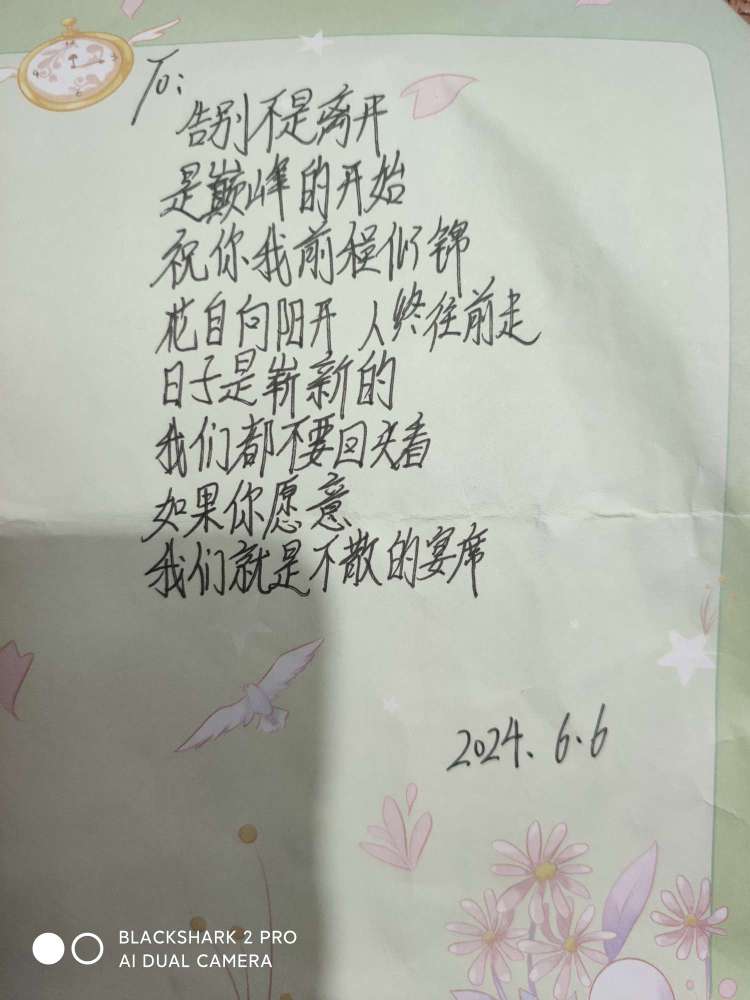 To:
告别不是离开
是巅峰的开始
祝你我前程似锦
花自向阳开 人终往前走
日子是崭新的
我们都不要回头看
如果你愿意
我们就是不散的宴席
2024.6.6
BLACKSHARK 2 PRO
AI DUAL CAMERA